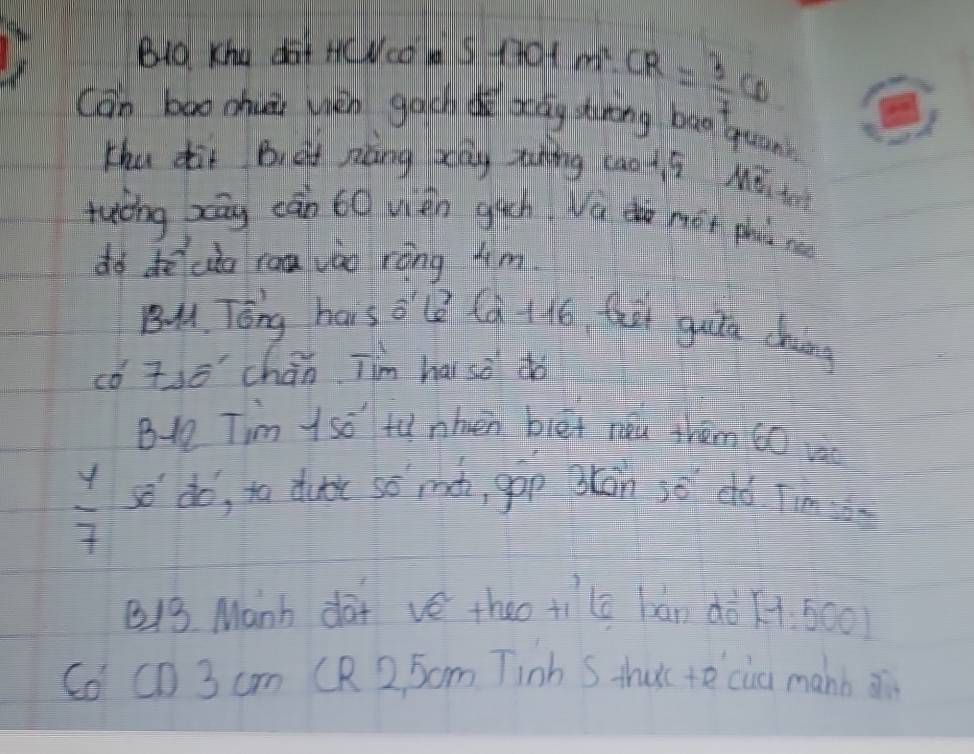 B10 Khu đất HCN có S 1701 m². CR = 3/7 CD
Cần bao nhiêu viên gạch để xây tường bao quanh
khu đất. Biết rằng xây tường cao 1,5 Mỗi
tường xây cần 60 viên gạch. Và một phía nào
đó để cửa ra vào rộng 4m.
B11. Tổng hai số lẻ là 116, biết giữa chúng
có 7 số chẵn. Tìm hai số đó
B12 Tìm 1 số tự nhiên biết nếu thêm 60 vào
4/7 số đó, ta được số mới, gấp 3 lần số đó. Tìm
B13. Mảnh đất vẽ theo tỉ lệ bản đồ 1:500
Có CD 3 cm CR 2,5cm. Tính S thực tế của mảnh đất